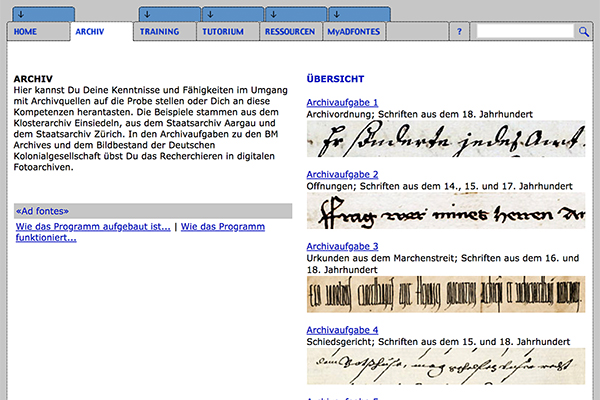 HOME
ARCHIV
TRAINING
TUTORIUM
RESSOURCEN
MyADFONTES
?
ARCHIV
Hier kannst Du Deine Kenntnisse und Fähigkeiten im Umgang
mit Archivquellen auf die Probe stellen oder Dich an diese
Kompetenzen herantasten. Die Beispiele stammen aus dem
Klosterarchiv Einsiedeln, aus dem Staatsarchiv Aargau und
dem Staatsarchiv Zürich. In den Archivaufgaben zu den BM
Archives und dem Bildbestand der Deutschen
Kolonialgesellschaft übst Du das Recherchieren in digitalen
Fotoarchiven.
«Ad fontes»
Wie das Programm aufgebaut ist... | Wie das Programm
funktioniert...
ÜBERSICHT
Archivaufgabe 1
Archivordnung; Schriften aus dem 18. Jahrhundert
Er sönderte jedes Amt.
Archivaufgabe 2
Offnungen; Schriften aus dem 14., 15. und 17. Jahrhundert
Frag war mines herren
Archivaufgabe 3
Urkunden aus dem Marchenstreit; Schriften aus dem 16. und
18. Jahrhundert
Archivaufgabe 4
Schiedsgericht; Schriften aus dem 15. und 18. Jahrhundert